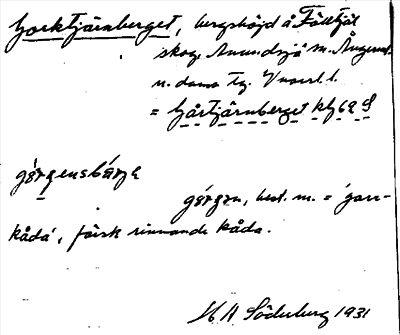 Gorktjärnberget, bergshöjd å Fälltjäl
skog Anundsjö sn. Ångerml.
u. dans tg.
= Gårtjärnberget kbl 69 S
görgensbärje
görgen, best. m. = 'garr-
kåda', färsk rinnande kåda.
H A Söderberg 1931